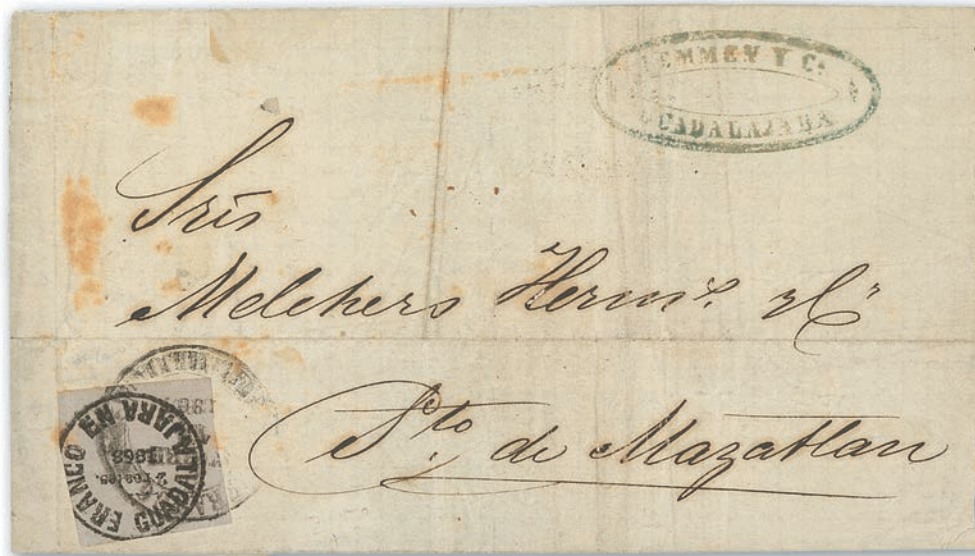 EMMEN Y Cª
GUADALAJARA
Sres
Melchers Hermos y Cª
Pto de Mazatlan
FRANCO EN GUADALAJARA
2 reales.
1868